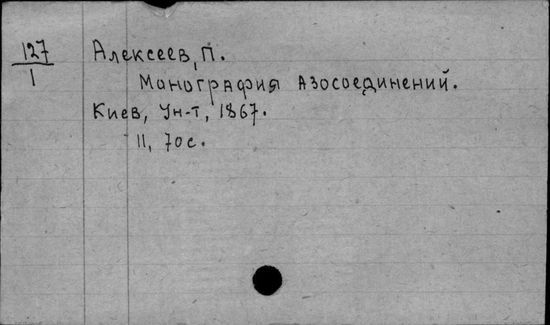 127 Алексеев, П.
1 Монография азосоединений.
Киев, Ун-т, 1867.
II, 70 с.